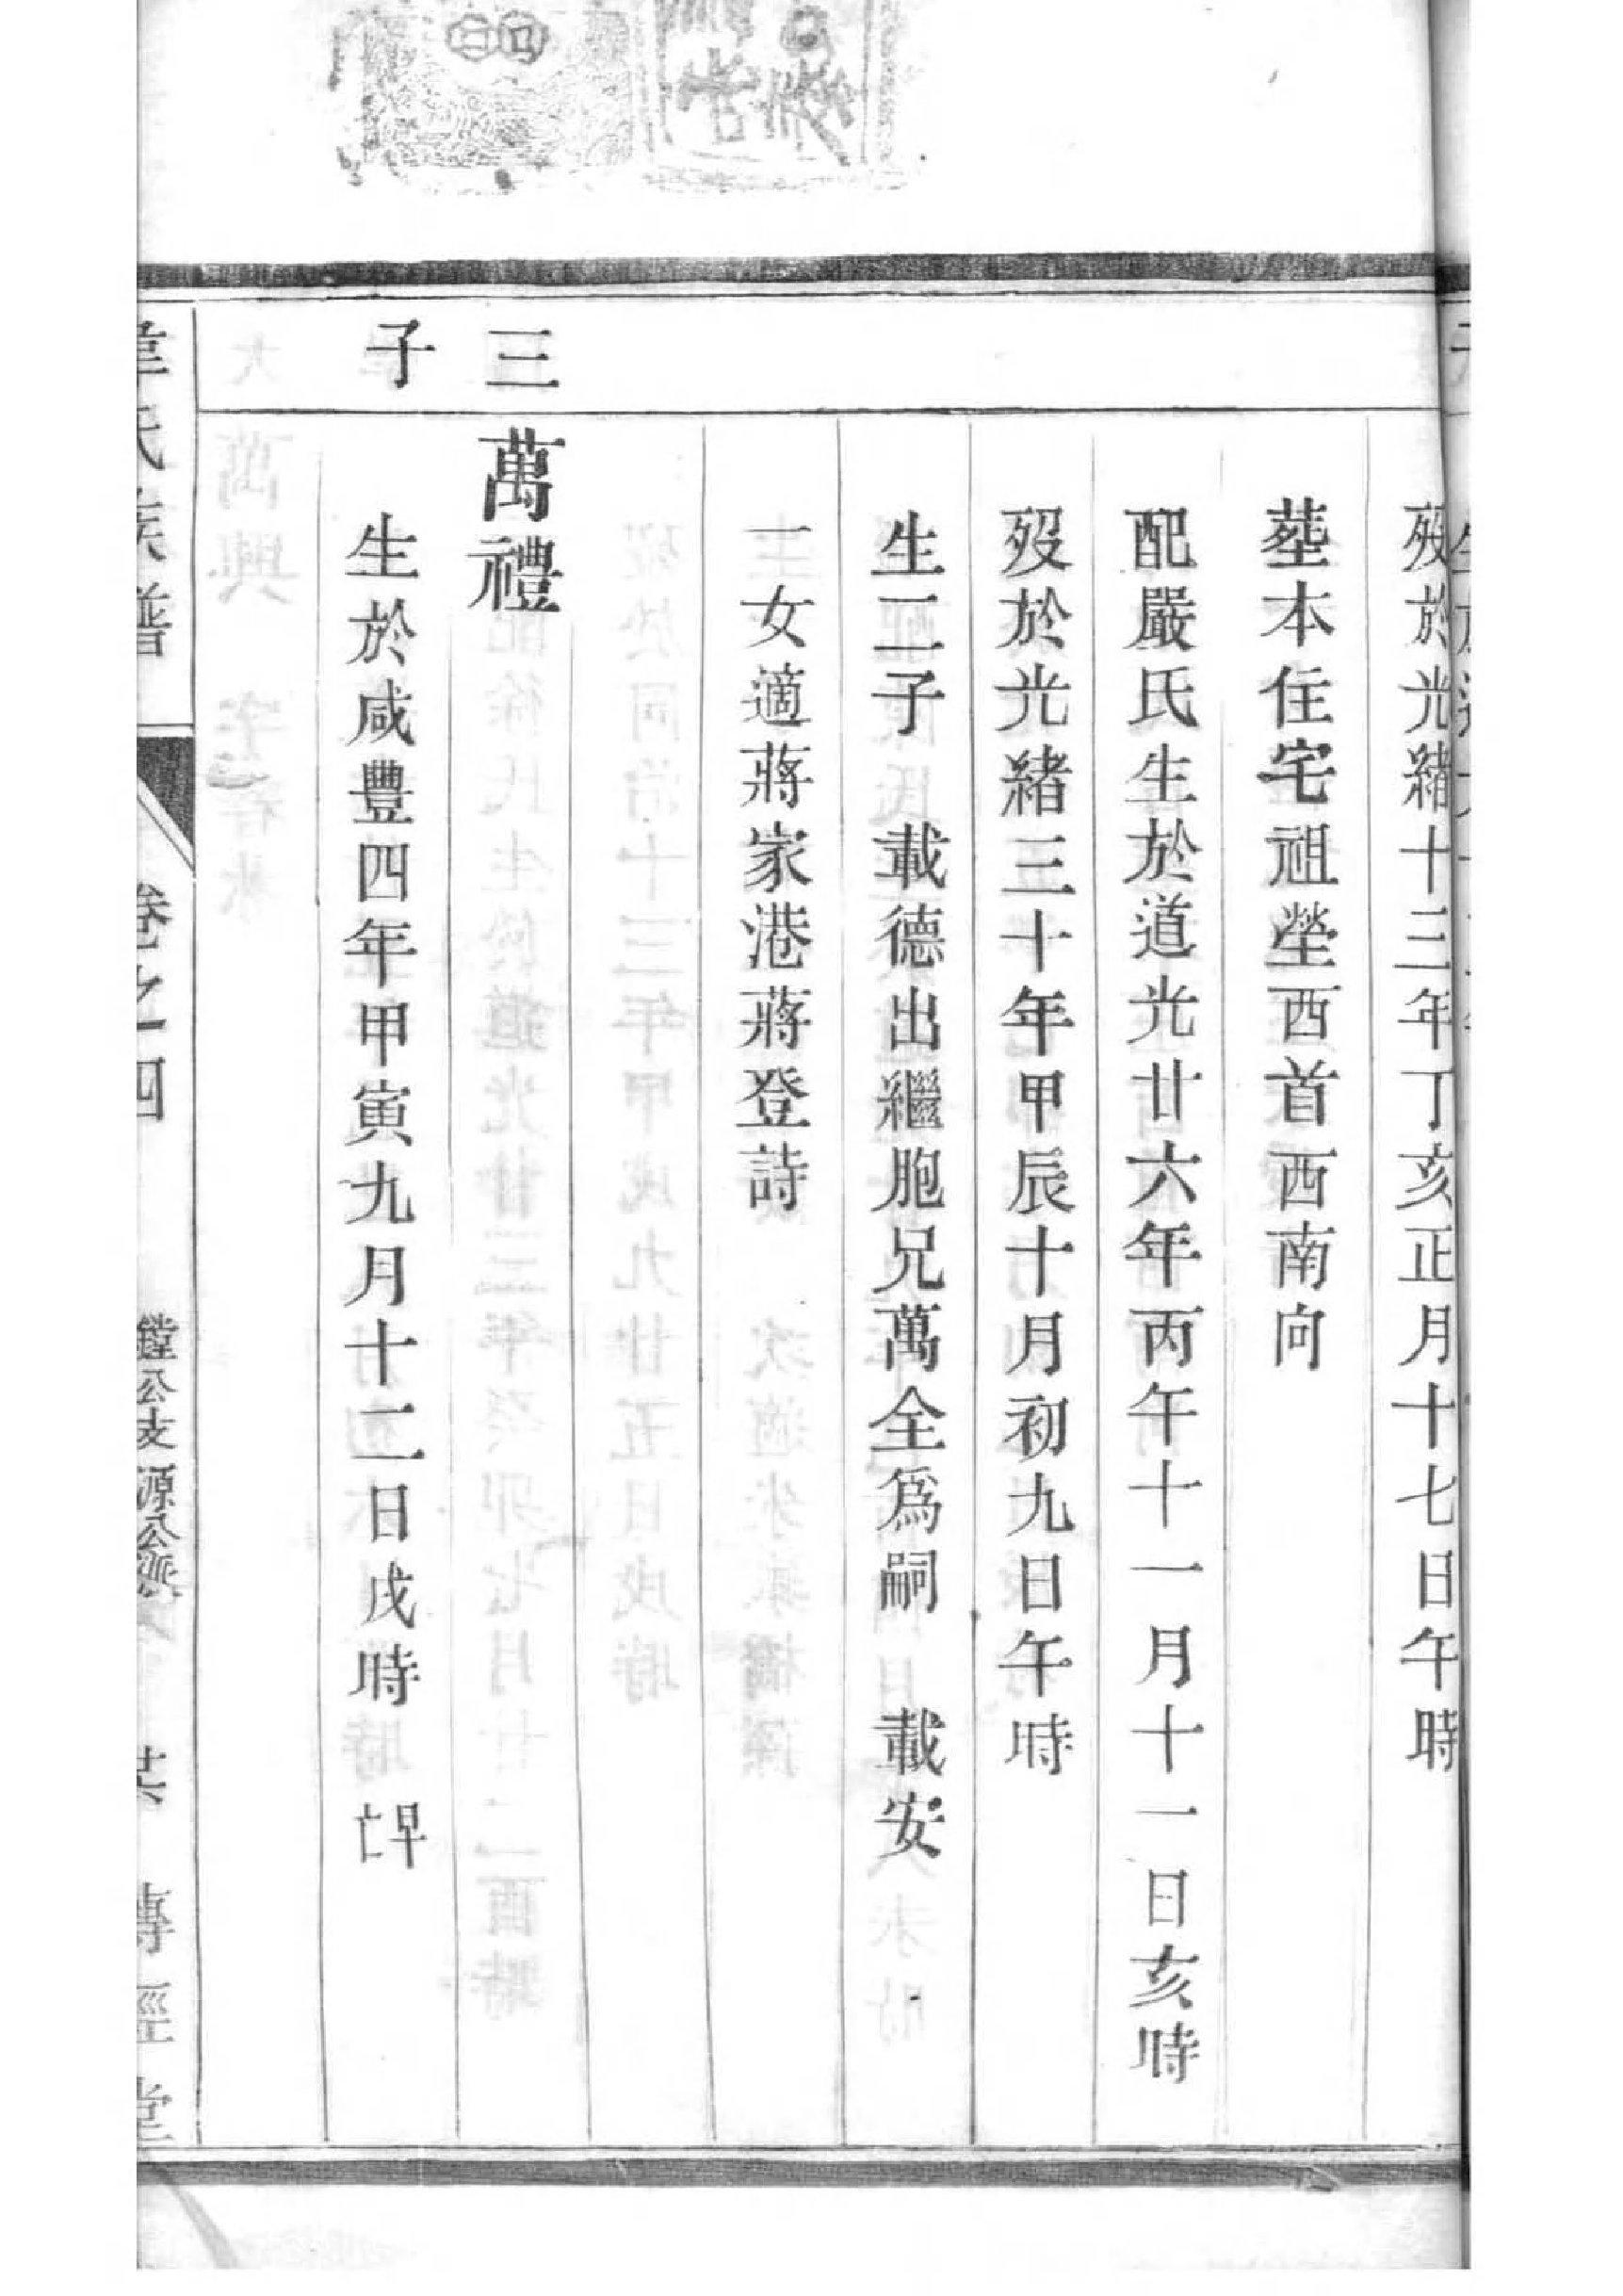 歿於光緒十三年丁亥正月十七日午時
葬本住宅祖塋西首西南向
配嚴氏生於道光廿六年丙午十一月十一日亥時
歿於光緒三十年甲辰十月初九日午時
生二子 載德出繼胞兄萬全爲嗣 載安
一女適蔣家港蔣登詩
三 萬禮
子 生於咸豐四年甲寅九月十二日戌時 早亡
韋氏族譜 卷之四 鏜公支源公 傳經堂